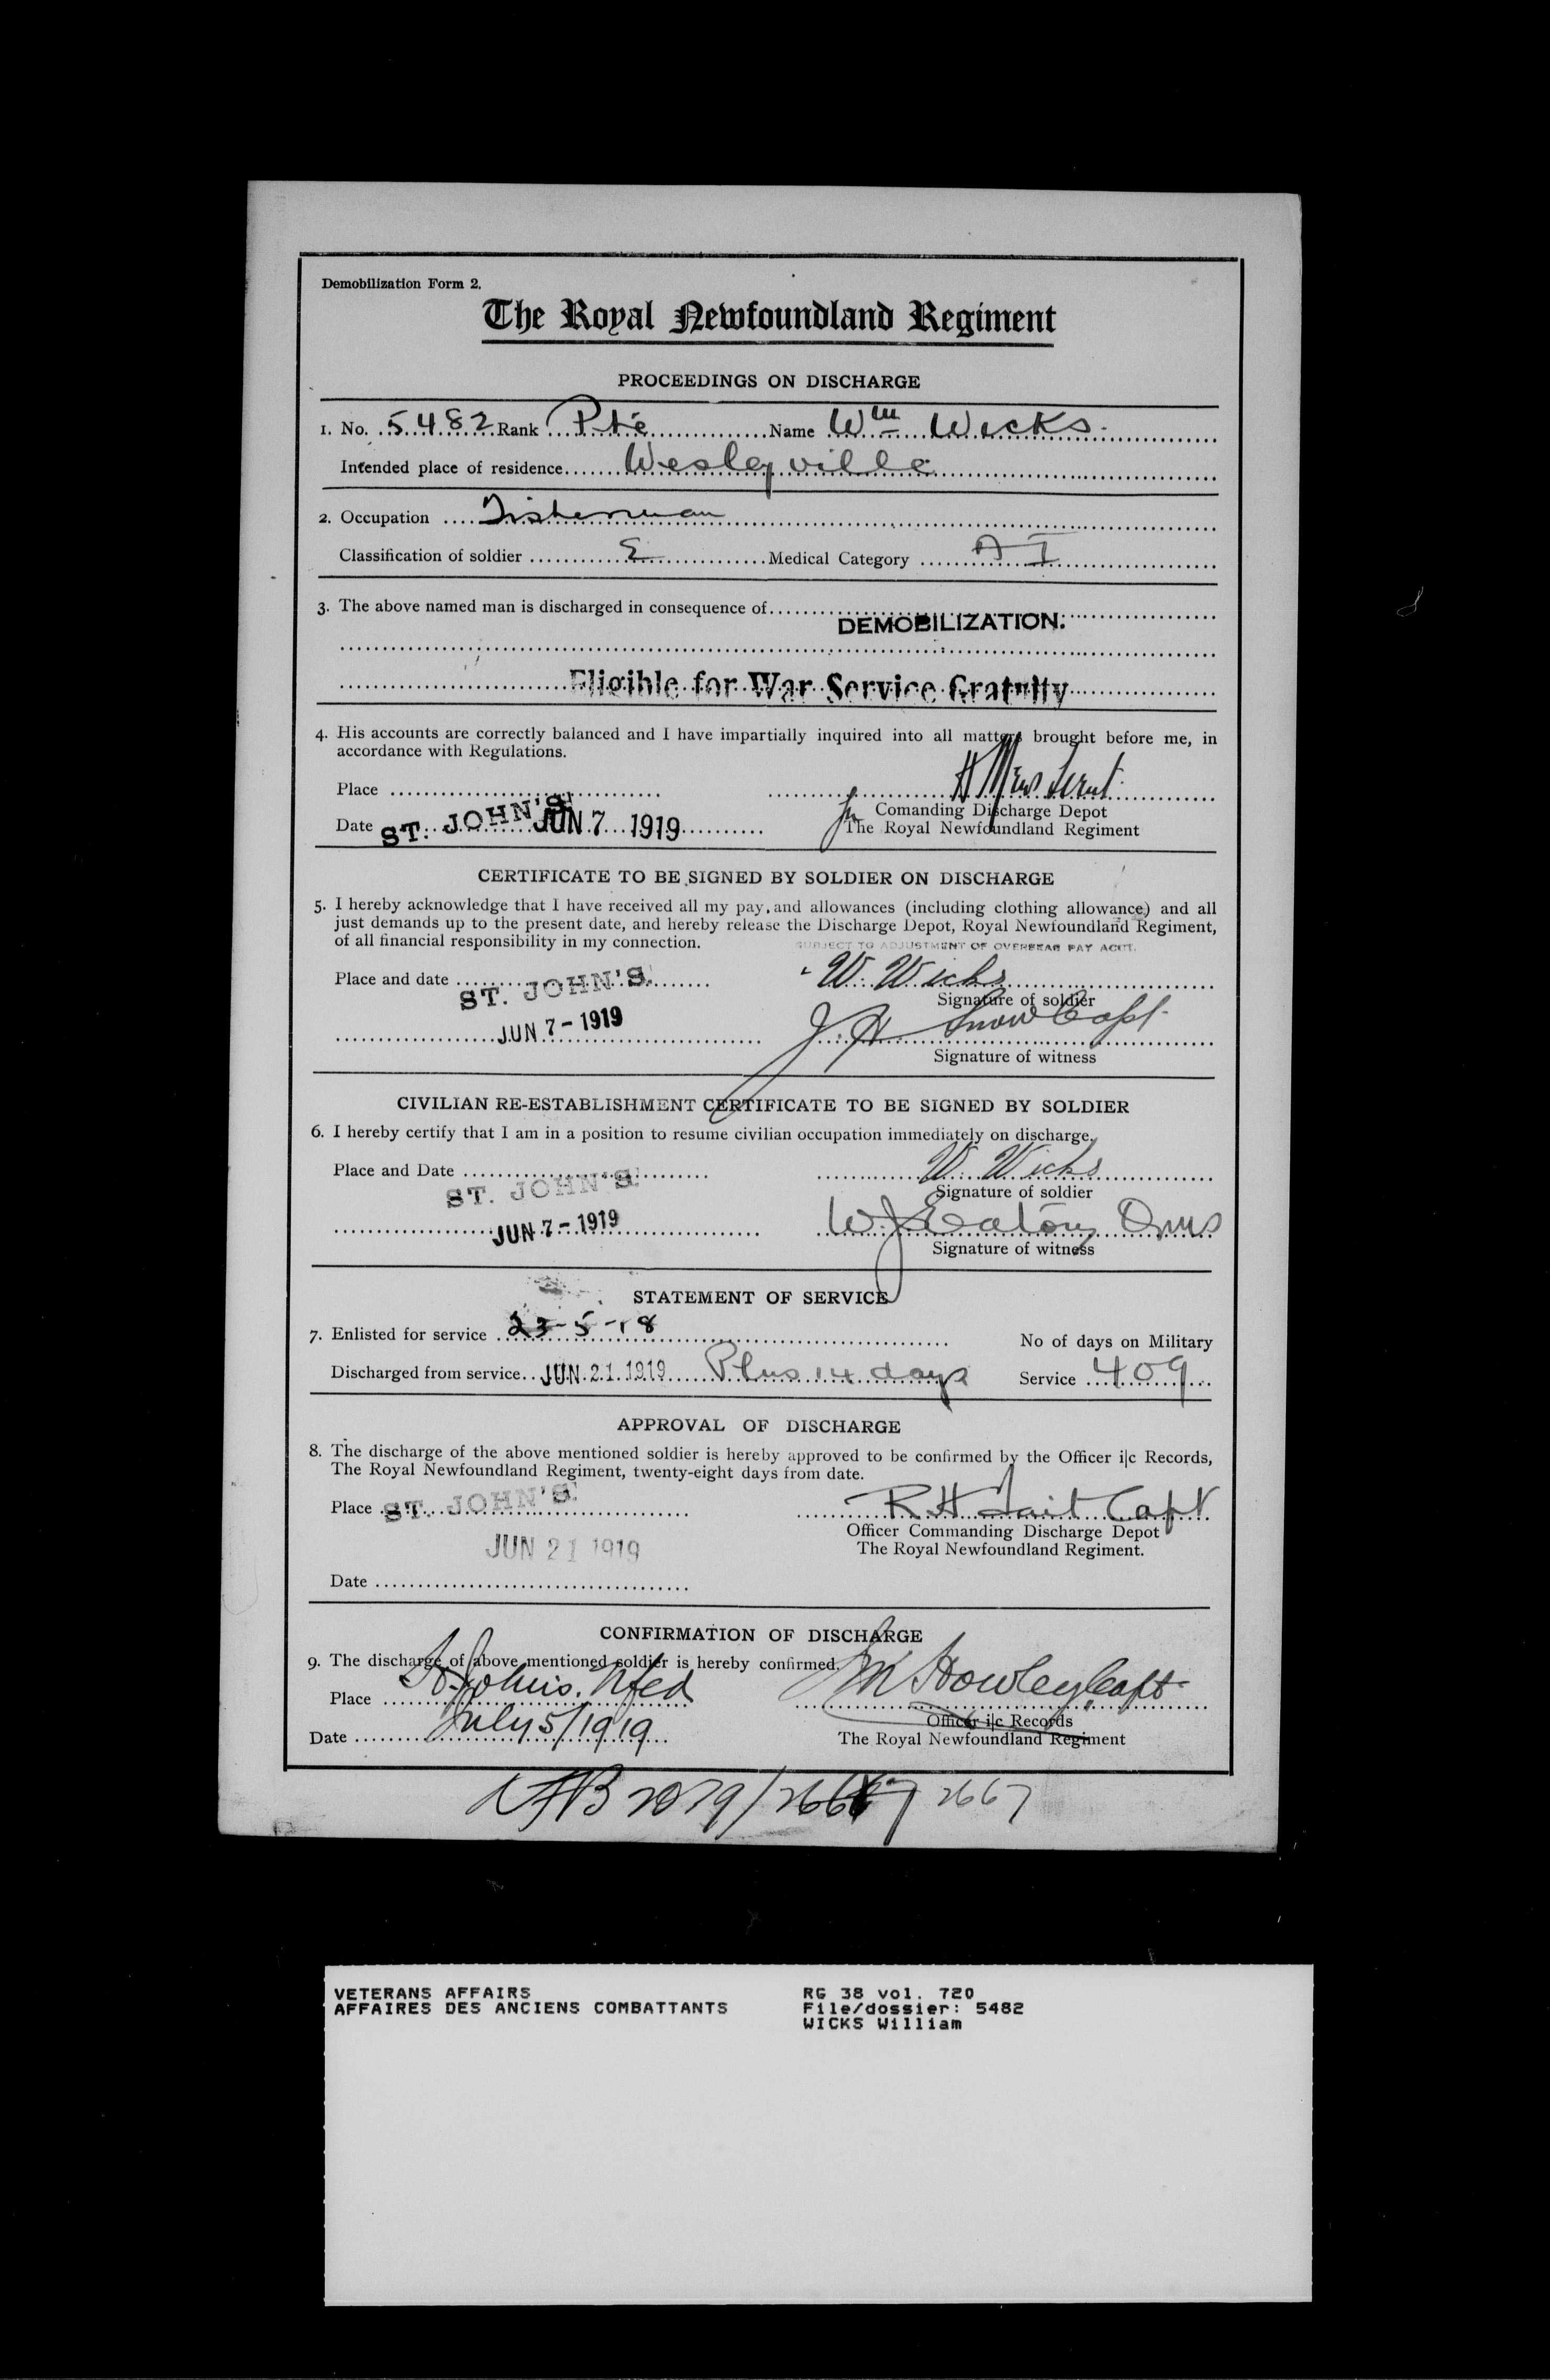 Demobilization Form 2.
The Royal Newfoundland Regiment
PROCEEDINGS ON DISCHARGE
1. No. 5482 Rank Pte Name Wm Wicks
Intended place of residence Wesleyville
2. Occupation Fisherman
Classification of soldier E Medical Category A I
3. The above named man is discharged in consequence of
DEMOBILIZATION.
Eligible for War Service Gratuity
4. His accounts are correctly balanced and I have impartially inquired into all matters brought before me, in
accordance with Regulations.
Place
Comanding Discharge Depot
Date ST. JOHN'S JUN 7 1919 for The Royal Newfoundland Regiment
CERTIFICATE TO BE SIGNED BY SOLDIER ON DISCHARGE
5. I hereby acknowledge that I have received all my pay, and allowances (including clothing allowance) and all
just demands up to the present date, and hereby release the Discharge Depot, Royal Newfoundland Regiment,
of all financial responsibility in my connection. SUBJECT TO ADJUSTMENT OF OVERSEAS PAY ACCT.
Place and date ST. JOHN'S W. Wicks
Signature of soldier
JUN 7 - 1919 J. H. Snow Capt.
Signature of witness
CIVILIAN RE-ESTABLISHMENT CERTIFICATE TO BE SIGNED BY SOLDIER
6. I hereby certify that I am in a position to resume civilian occupation immediately on discharge.
Place and Date ST. JOHN'S W. Wicks
Signature of soldier
JUN 7 - 1919 W J Eaton
Signature of witness
STATEMENT OF SERVICE
7. Enlisted for service 23-5-18 No of days on Military
Discharged from service JUN 21 1919 Plus 14 days Service 409
APPROVAL OF DISCHARGE
8. The discharge of the above mentioned soldier is hereby approved to be confirmed by the Officer i|c Records,
The Royal Newfoundland Regiment, twenty-eight days from date.
Place ST. JOHN'S R H Tait Capt
Officer Commanding Discharge Depot
JUN 21 1919 The Royal Newfoundland Regiment.
Date
CONFIRMATION OF DISCHARGE
9. The discharge of above mentioned soldier is hereby confirmed.
Place St John's. Nfld Howley Capt
Officer i|c Records
Date July 5/1919 The Royal Newfoundland Regiment
2079/2667 2667
VETERANS AFFAIRS RG 38 vol. 720
AFFAIRES DES ANCIENS COMBATTANTS File/dossier: 5482
WICKS William